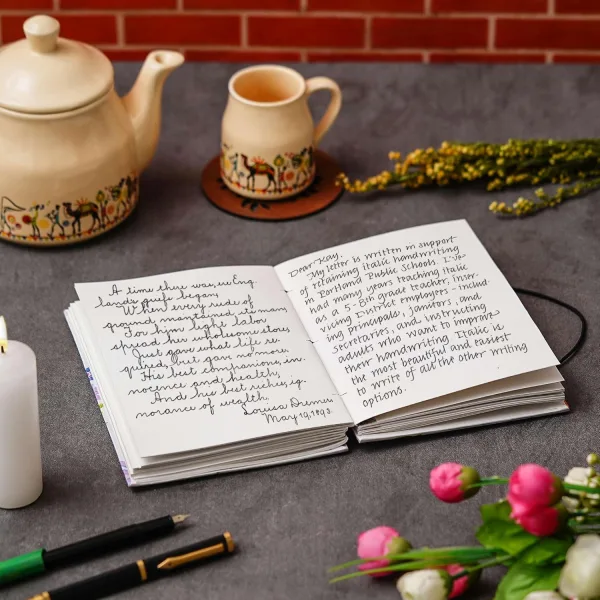 A time there was, ere Eng-
lands griefs began,
When every rude of
ground maintained its man,
For him light labor
spread her wholesome store,
Just gave what life re-
quired, but gave no more,
His best companions, in-
nocence and health,
And his best riches, ig-
norance of wealth.
Louisa
May 19, 1893.
Dear Kay,
My letter is written in support
of retaining italic handwriting
in Portland Public Schools. I've
had many years teaching italic
as a 5-8th grade teacher, inser-
vicing District employers - includ-
ing principals, janitors, and
secretaries, and instructing
adults who want to improve
their handwriting. Italic is
the most beautiful and easiest
to write of all the other writing
options.